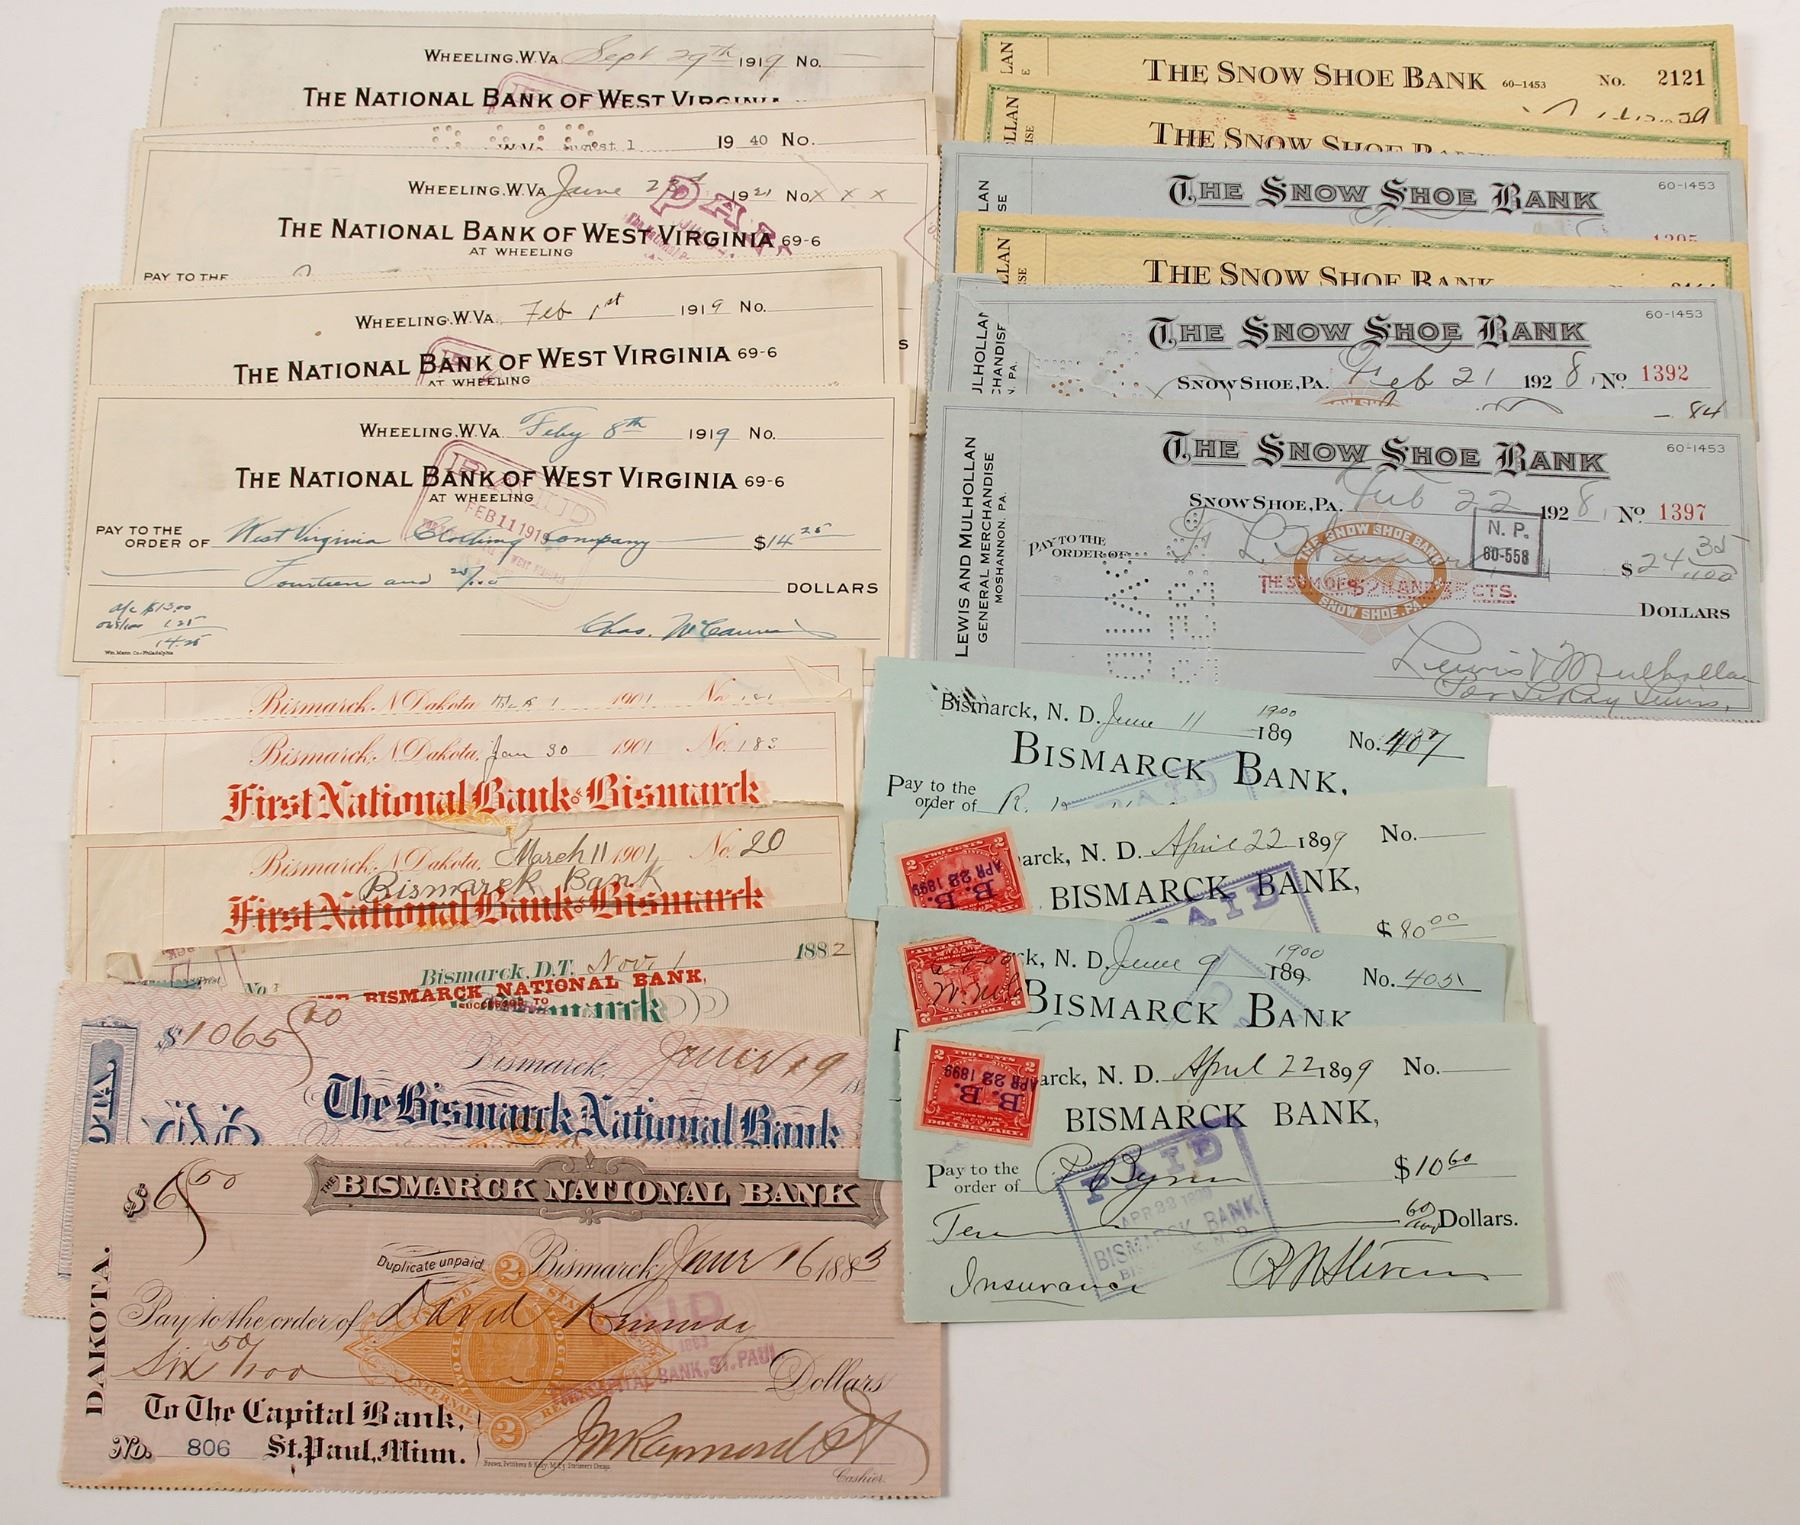 WHEELING, W.VA. Sept 29th 1919 No.
THE NATIONAL BANK OF WEST VIRGINIA
1940 No.
WHEELING, W.VA. June 23d 1921 No. X X X
THE NATIONAL BANK OF WEST VIRGINIA 69-6
AT WHEELING
PAY TO THE
WHEELING, W.VA. Feb 1st 1919 No.
THE NATIONAL BANK OF WEST VIRGINIA 69-6
AT WHEELING
WHEELING, W.VA. Feby 8th 1919 No.
THE NATIONAL BANK OF WEST VIRGINIA 69-6
AT WHEELING
FEB 11 1919
PAY TO THE
ORDER OF West Virginia Clothing Company $14 25
Fourteen and 25/100 DOLLARS
a/c $13.00
1.25
14.25
Chas.
Wm. Mann Co. Philadelphia
Bismarck, N. Dakota, 1901 No.
Bismarck, N. Dakota, Jan 30 1901 No. 183
First National Bank of Bismarck
Bismarck, N. Dakota, March 11 1901 No. 20
Bismarck Bank
First National Bank of Bismarck
Bismarck, D.T. Nov 1 1882
No.
THE BISMARCK NATIONAL BANK,
SUCCESSOR TO
$1065
Bismarck, 19
The Bismarck National Bank
$6 50
THE BISMARCK NATIONAL BANK
Duplicate unpaid.
Bismarck, 16 1883
DAKOTA.
Pay to the order of David
Six 50/100 Dollars
PAID
BANK, ST. PAUL
To The Capital Bank,
No. 806 St. Paul, Minn.
J W Raymond
Cashier.
THE SNOW SHOE BANK 60-1453 No. 2121
THE SNOW SHOE BANK
THE SNOW SHOE BANK 60-1453
THE SNOW SHOE BANK
THE SNOW SHOE BANK 60-1453
SNOW SHOE, PA. Feb 21 1928, No 1392
84
THE SNOW SHOE BANK 60-1453
SNOW SHOE, PA. Feb 22 1928, No 1397
LEWIS AND MULHOLLAN
GENERAL MERCHANDISE
MOSHANNON, PA.
PAY TO THE
ORDER OF
N. P.
60-558
$24 35/100
THE SNOW SHOE BANK
SNOW SHOE, PA.
DOLLARS
Lewis & Mulhollan
Per LeRoy Lewis.
Bismarck, N. D. June 11 1900 189 No. 407
BISMARCK BANK,
PAID
Pay to the
order of R.
TWO CENTS
APR 22 1899
B. B.
arck, N. D. April 22 1899 No.
BISMARCK BANK,
PAID
$80 00
k, N. D. June 9 1900 189 No. 405
BISMARCK BANK
TWO CENTS
APR 22 1899
B. B.
DOCUMENTARY
arck, N. D. April 22 1899 No.
BISMARCK BANK,
Pay to the
order of P Byrne $10 60
PAID
APR 22 1899
BISMARCK BANK
Ten 60/100 Dollars.
Insurance R N Stevens